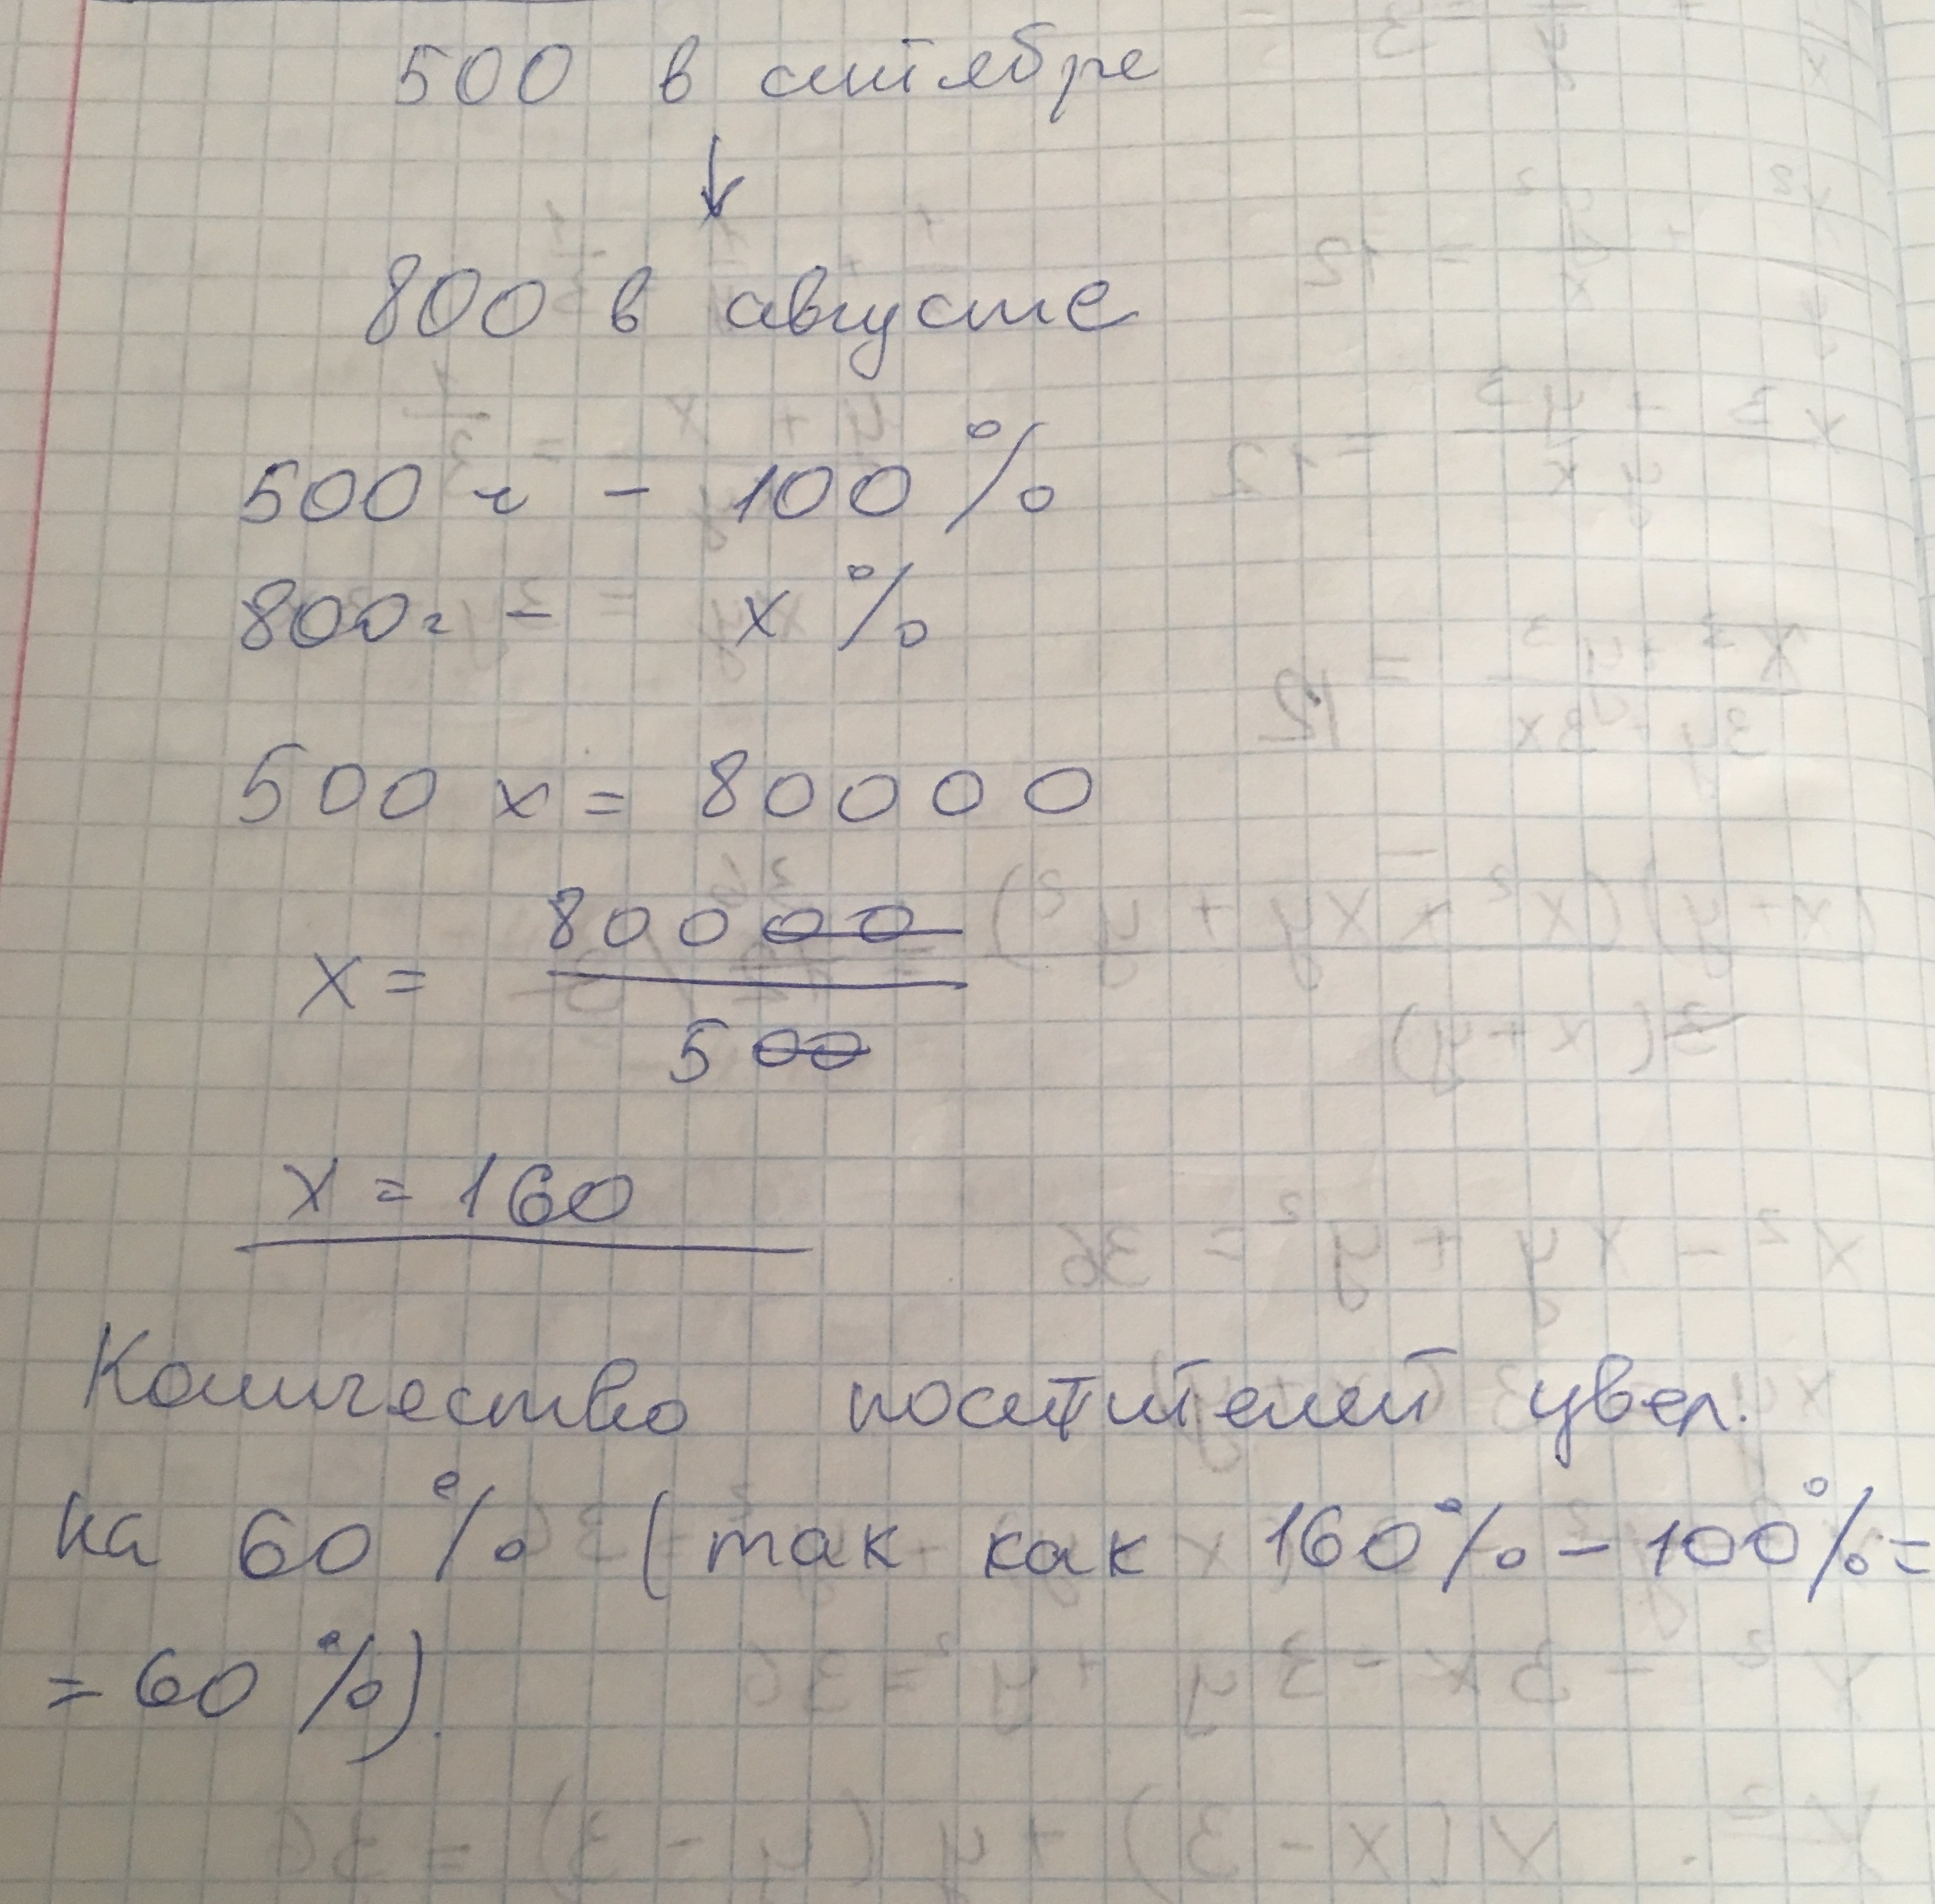 500 в сентябре
↓
800 в августе
500 ч - 100 %
800 ч - x %
500 x = 80000
x = 80000 / 500
x = 160
Количество посетителей увел.
на 60 % (так как 160% - 100% =
= 60 %).